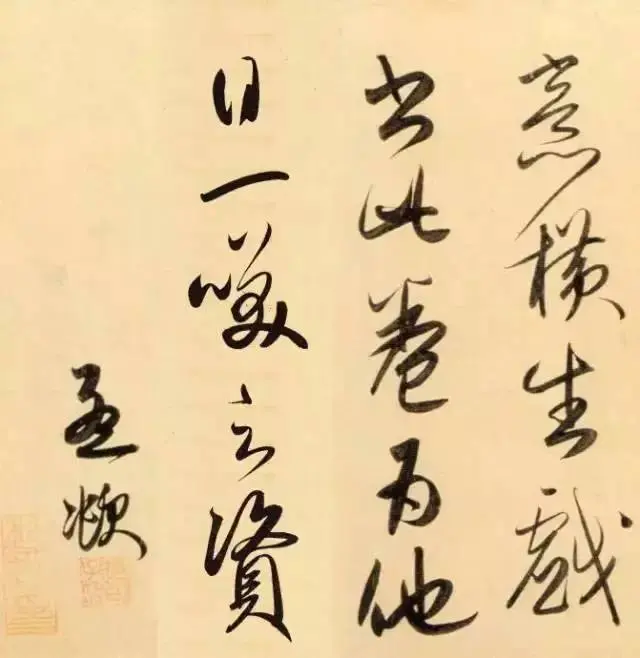 意橫生戲
書此卷為他
日一笑之資
孟頫